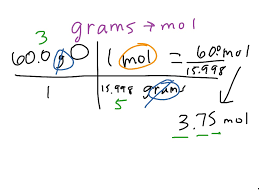 grams → mol
3
60.0 g O | 1 mol = 60.0 mol
1 | 15.998 grams 15.998
5
3.75 mol